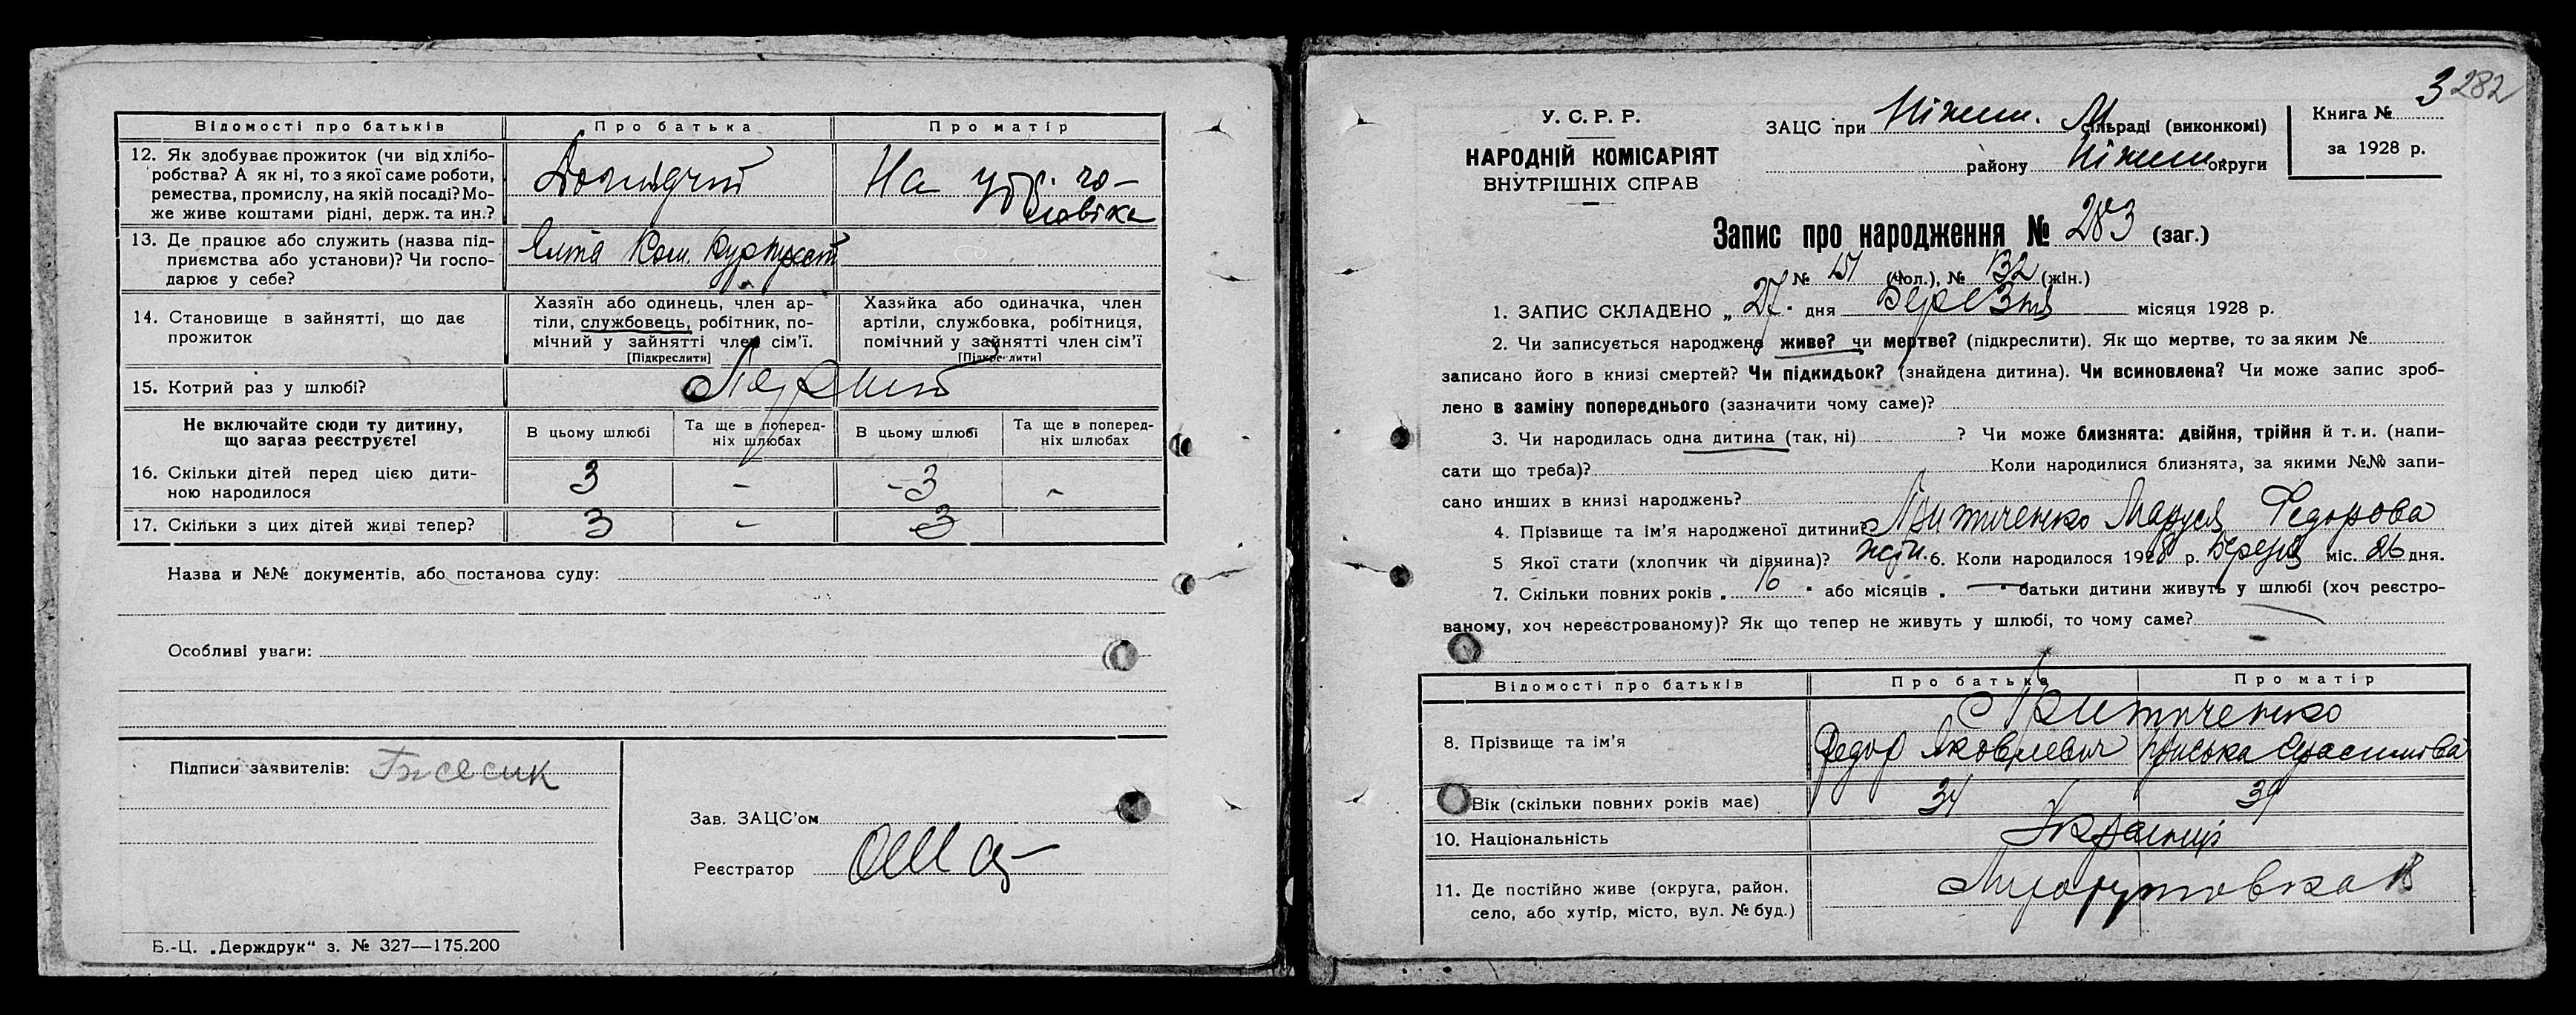 Відомості про батьків
Про батька
Про матір
12. Як здобуває прожиток (чи від хлібо-
робства? А як ні, то з якої саме роботи,
ремества, промислу, на якій посаді? Мо-
же живе коштами рідні, держ. та ин.?
На утр. чо-
ловіка
13. Де працює або служить (назва під-
приємства або установи)? Чи госпо-
дарює у себе?
Ялта Ком. Куртрест
14. Становище в зайнятті, що дає
прожиток
Хазяїн або одинець, член ар-
тіли, службовець, робітник, по-
мічний у зайнятті член сім'ї.
[Підкреслити]
Хазяйка або одиначка, член
артіли, службовка, робітниця,
помічний у зайнятті член сім'ї
[Підкреслити]
15. Котрий раз у шлюбі?
Первий
Не включайте сюди ту дитину,
що загаз реєструєте!
В цьому шлюбі
Та ще в поперед-
ніх шлюбах
В цьому шлюбі
Та ще в поперед-
ніх шлюбах
16. Скільки дітей перед цією дити-
ною народилося
3 - 3 -
17. Скільки з цих дітей живі тепер?
3 - 3
Назва и №№ документів, або постанова суду:
Особливі уваги:
Підписи заявителів:
Зав. ЗАЦС'ом
Реєстратор
Б.-Ц. „Держдрук“ з. № 327—175.200
3 282
У. С. Р. Р.
НАРОДНІЙ КОМІСАРІЯТ
ВНУТРІШНІХ СПРАВ
ЗАЦС при Ніжин. М сільраді (виконкомі)
району Ніжин округи
Книга №
за 1928 р.
Запис про народження № 283 (заг.)
№ 151 (чол.), № 132 (жін.)
1. ЗАПИС СКЛАДЕНО „ 27 " дня Березня місяця 1928 р.
2. Чи записується народжене живе? чи мертве? (підкреслити). Як що мертве, то за яким №
записано його в книзі смертей? Чи підкидьок? (знайдена дитина). Чи всиновлена? Чи може запис зроб-
лено в заміну попереднього (зазначити чому саме)?
3. Чи народилась одна дитина (так, ні) ? Чи може близнята: двійня, трійня й т. и. (напи-
сати що треба)? Коли народилися близнята, за якими №№ запи-
сано инших в книзі народжень?
4. Прізвище та ім'я народженої дитини? Притченко Маруся Федорова
5 Якої стати (хлопчик чи дівчина)? жін. 6. Коли народилося 1928 р. Березня міс. 26 дня.
7. Скільки повних років „ 16 " або місяців „ — " батьки дитини живуть у шлюбі (хоч реєстро-
ваному, хоч нереєстрованому)? Як що тепер не живуть у шлюбі, то чому саме? —
Відомості про батьків
Про батька
Про матір
8. Прізвище та ім'я
Притченко
Федор Яковлевич
Приська
Вік (скільки повних років має)
34
10. Національність
Українці
11. Де постійно живе (округа, район,
село, або хутір, місто, вул. № буд.)
18